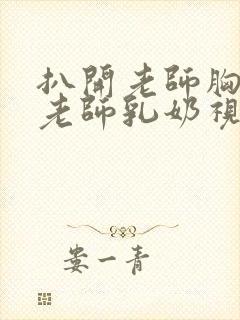 扒開老師胸
老師乳奶視
娄一青